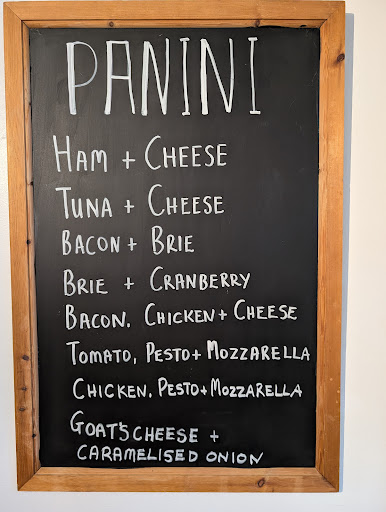 PANINI
HAM + CHEESE
TUNA + CHEESE
BACON + BRIE
BRIE + CRANBERRY
BACON, CHICKEN + CHEESE
TOMATO, PESTO + MOZZARELLA
CHICKEN, PESTO + MOZZARELLA
GOAT'S CHEESE +
CARAMELISED ONION